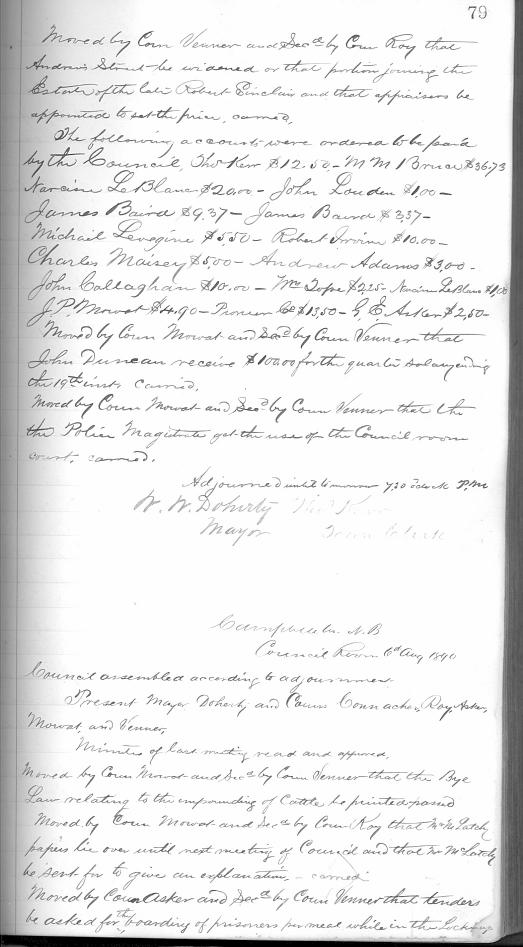 79
Moved by Coun Venner and Secd by Coun Roy that
Andrew Street be widened or that portion joining the
Estate of the late Robert Sinclair and that appraisers be
appointed to set the price, carried,
The following accounts were ordered to be paid
by the Council, Thos Kerr $12.50 - M M Bruce $36,73
Narcisse LeBlanc $20,00 - John Louden $1,00 -
James Baird $9.37 - James Baird $3,37 -
Michail Levegine $5,50 - Robert Irvine $10.00 -
Charles Maisey $5,00 - Andrew Adams $3,00 -
John Callaghan $10.00 - Wm $2,25 - Narcisse LeBlanc $1,00
J. P. Mowat $4.90 - Pioneer Co $13,50 - G, E. Asker $2,50 -
Moved by Coun Mowat and Secd by Coun Venner that
John Duncan receive $100,00 for the quarter salary ending
the 19th inst, carried,
Moved by Coun Mowat and Secd by Coun Venner that the
the Police Magistrate get the use of the Council room
court, carried.
Adjourned until tomorrow 7,30 oclock P.M
W. W. Doherty Thos Kerr
Mayor Town Clerk
Campbellton N.B
Council Room 6th Aug 1890
Council assembled according to adjournment
Present Mayor Doherty and Couns Connacher, Roy, Asker,
Mowat, and Venner,
Minutes of last meeting read and approved,
Moved by Coun Mowat and Secd by Coun Venner that the Bye
Law relating to the impounding of Cattle be printed passed
Moved by Coun Mowat and Secd by Coun Roy that Mr McLatchy
papers lie over until next meeting of Council and that Mr McLatchy
be sent for to give an explanation, - carried
Moved by Coun Asker and Secd by Coun Venner that tenders
be asked for the boarding of prisoners per meal while in the Lockup